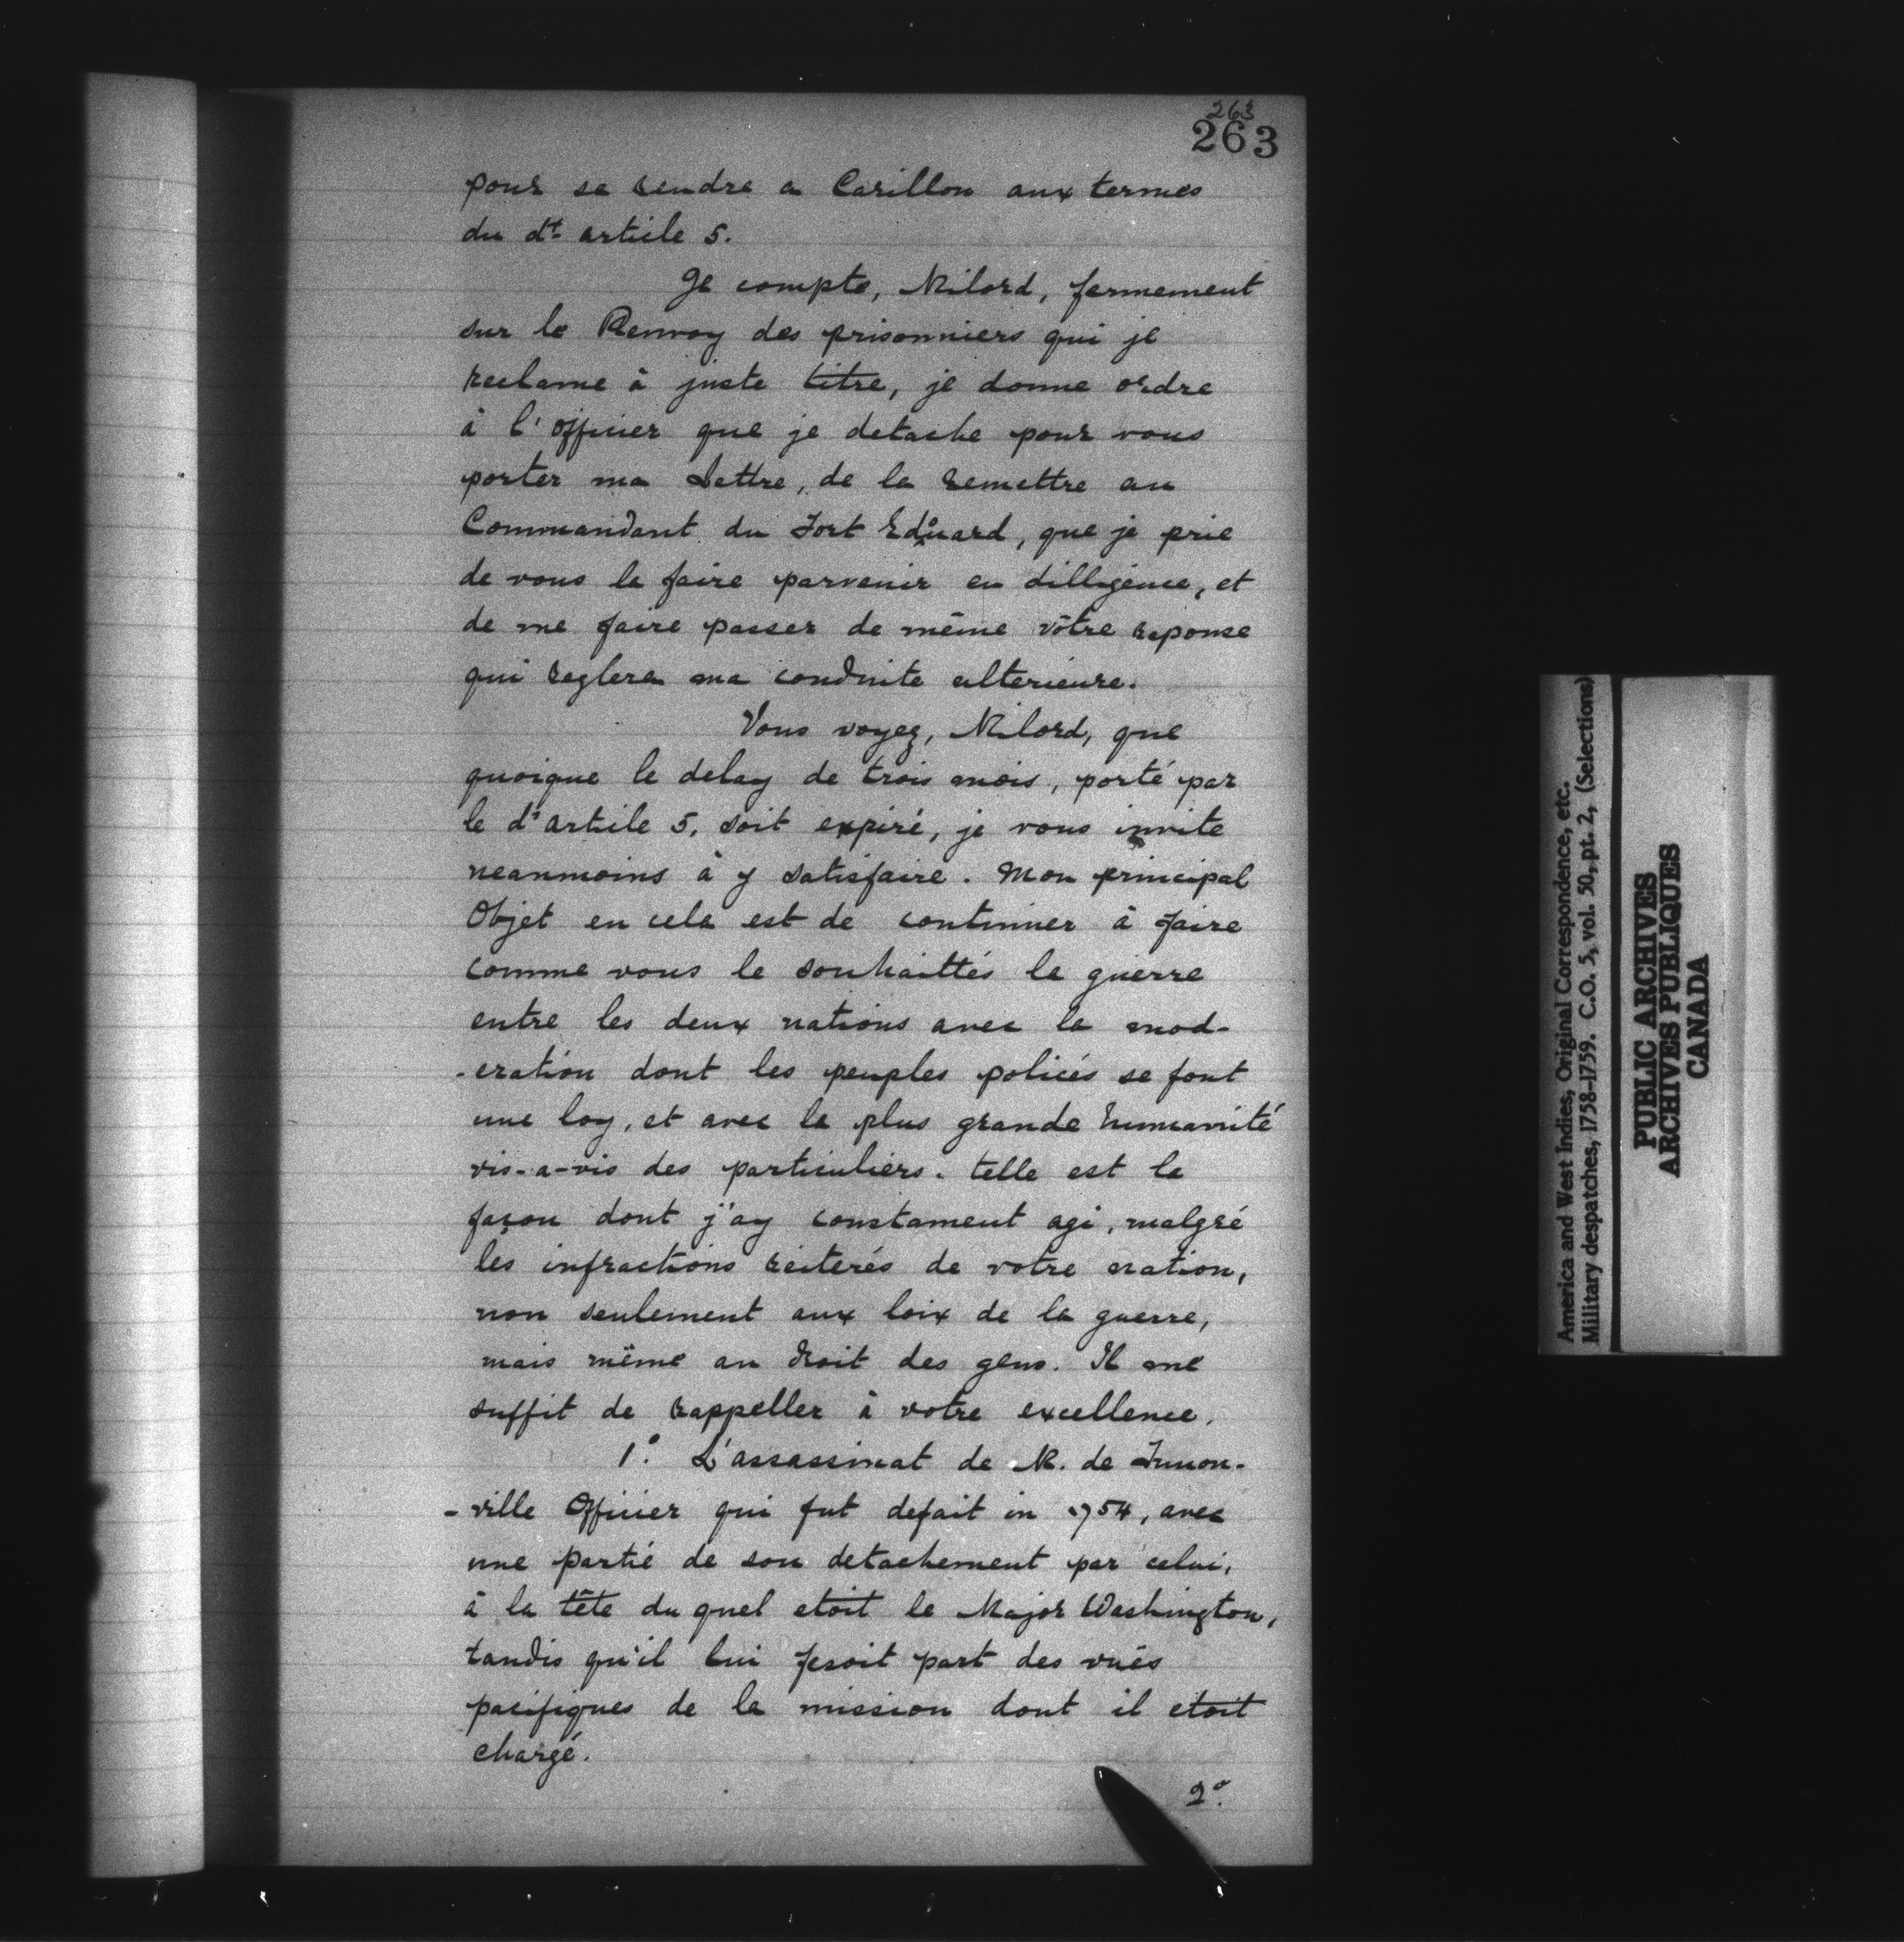 263
263
pour se rendre a Carillon aux termes
du dt article 5.
Je compte, Milord, fermement
sur le Renvoy des prisonniers qui je
reclame à juste titre, je donne ordre
à l'officier que je detache pour vous
porter ma Lettre, de la remettre au
Commandant du Fort Edouard, que je prie
de vous la faire parvenir en dilligence, et
de me faire passer de même vôtre reponse
qui reglera ma conduite ulterieure.
Vous voyez, Milord, que
quoique le delay de trois mois, porté par
le dt article 5. soit expiré, je vous invite
neanmoins à y satisfaire. Mon principal
Objet en cela est de continuer à faire
comme vous le souhaittés la guerre
entre les deux nations avec la mod-
-eration dont les peuples policés se font
une loy, et avec la plus grande humanité
vis-a-vis des particuliers. telle est la
façon dont j'ay constament agi, malgré
les infractions reiterés de votre nation,
non seulement aux loix de la guerre,
mais même au droit des gens. Il me
suffit de rappeller à votre excellence.
1º. L'assassinat de M. de Jumon-
-ville Officier qui fut defait in 1754, avec
une partié de son detachement par celui,
à la tête du quel etoit le Major Washington,
tandis qu'il lui fesoit part des vués
pacifiques de la mission dont il etoit
chargé.
2º.
America and West Indies, Original Correspondence, etc.
Military despatches, 1758-1759. C.O. 5, vol. 50, pt. 2, (Selections)
PUBLIC ARCHIVES
ARCHIVES PUBLIQUES
CANADA